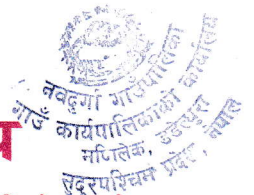 नवदुर्गा गाउँपालिका
गाउँ कार्यपालिकाको कार्यालय
डडेल्धुरा
सुदूरपश्चिम प्रदेश, नेपाल